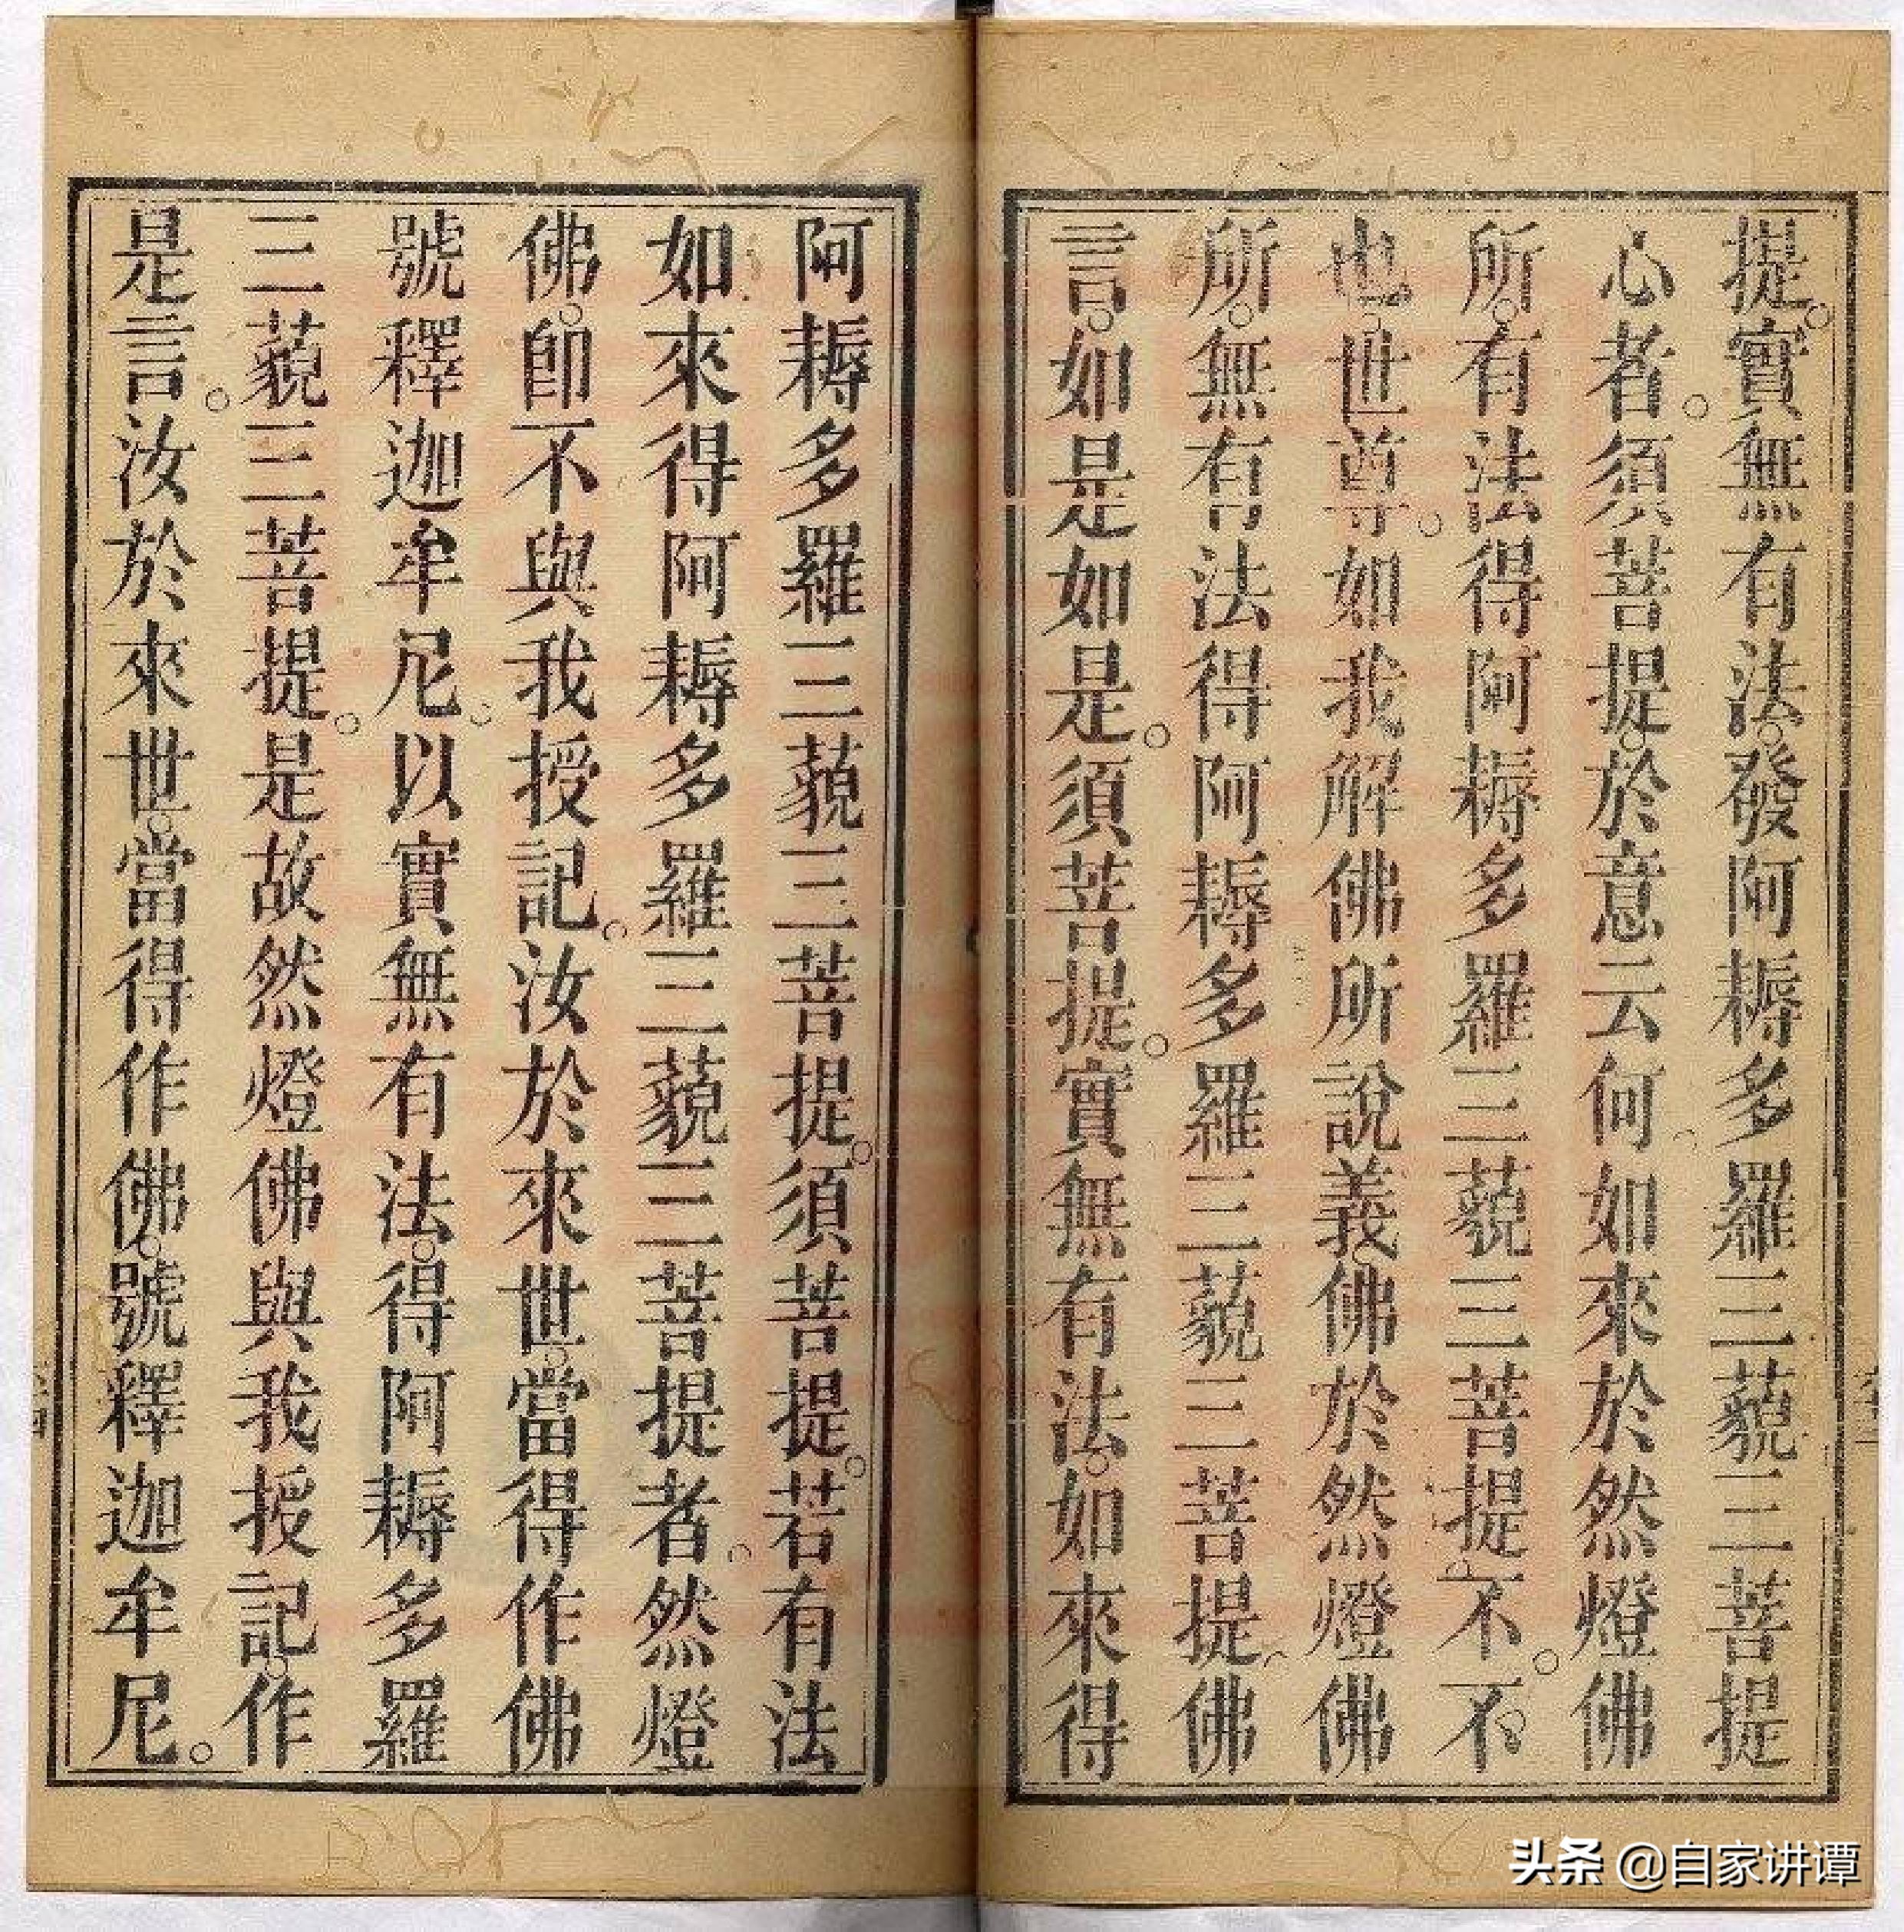 提。實無有法。發阿耨多羅三藐三菩提
心者。須菩提。於意云何。如來於然燈佛
所。有法得阿耨多羅三藐三菩提。不。不
也。世尊。如我解佛所說義。佛於然燈佛
所。無有法得阿耨多羅三藐三菩提。佛
言。如是如是。須菩提。實無有法。如來得
阿耨多羅三藐三菩提。須菩提。若有法
如來得阿耨多羅三藐三菩提者。然燈
佛。卽不與我授記。汝於來世。當得作佛
號釋迦牟尼。以實無有法。得阿耨多羅
三藐三菩提。是故然燈佛與我授記。作
是言。汝於來世。當得作佛。號釋迦牟尼。
头条 @自家讲谭